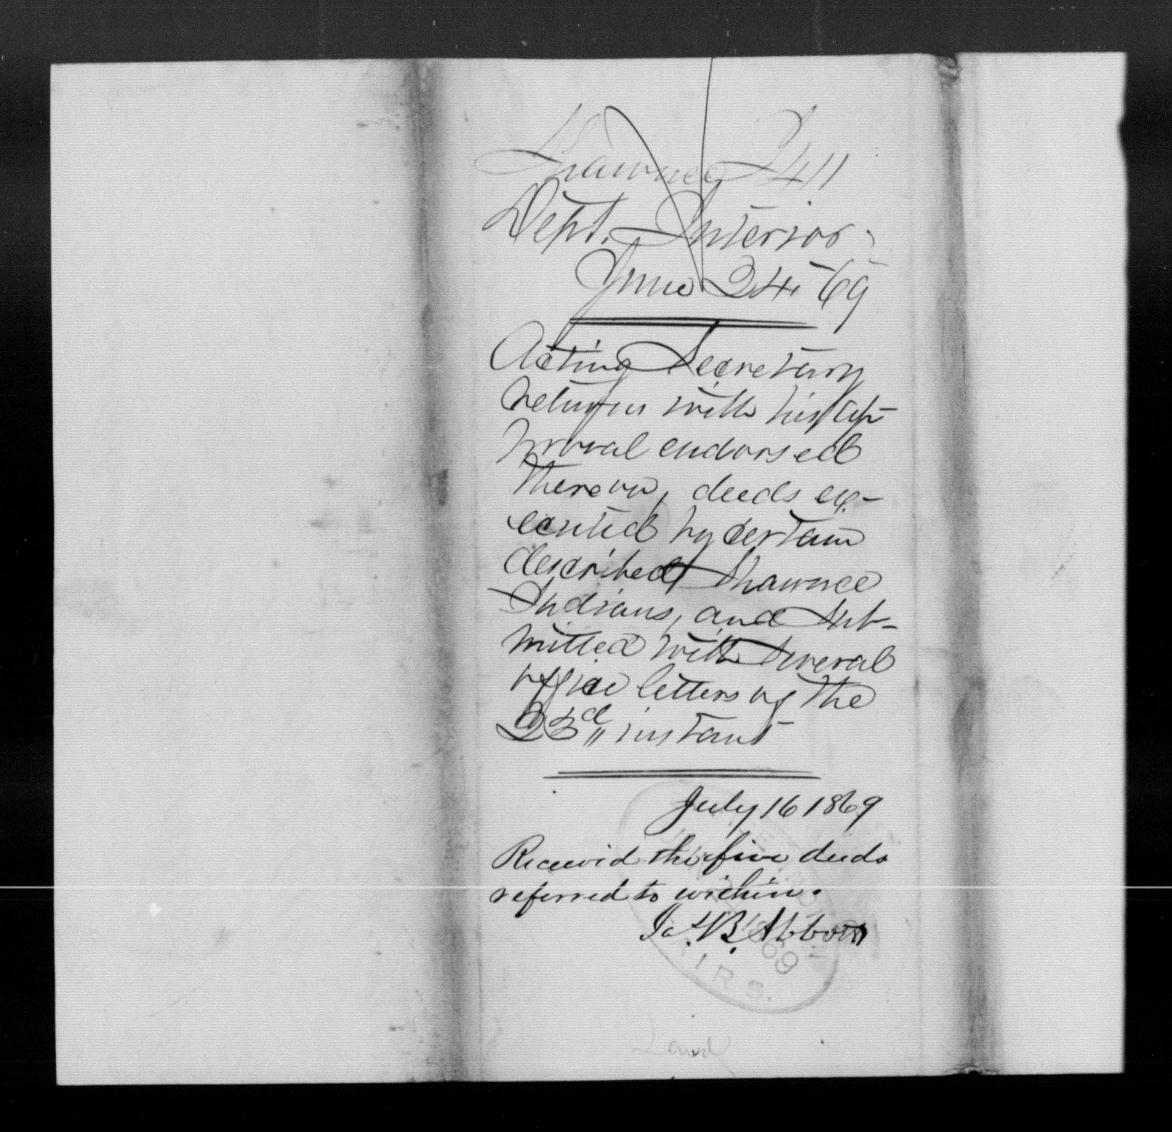 Shawnee I 411
Dept. Interior
June 24, 69
Acting Secretary
returns with his ap-
proval endorsed
thereon, deeds ex-
ecuted by certain
described Shawnee
Indians, and sub-
mitted with several
office letters of the
23d instant
July 16 1869
Received the five deeds
referred to within.
Jas. B. Abbott
69
AIRS.
Land